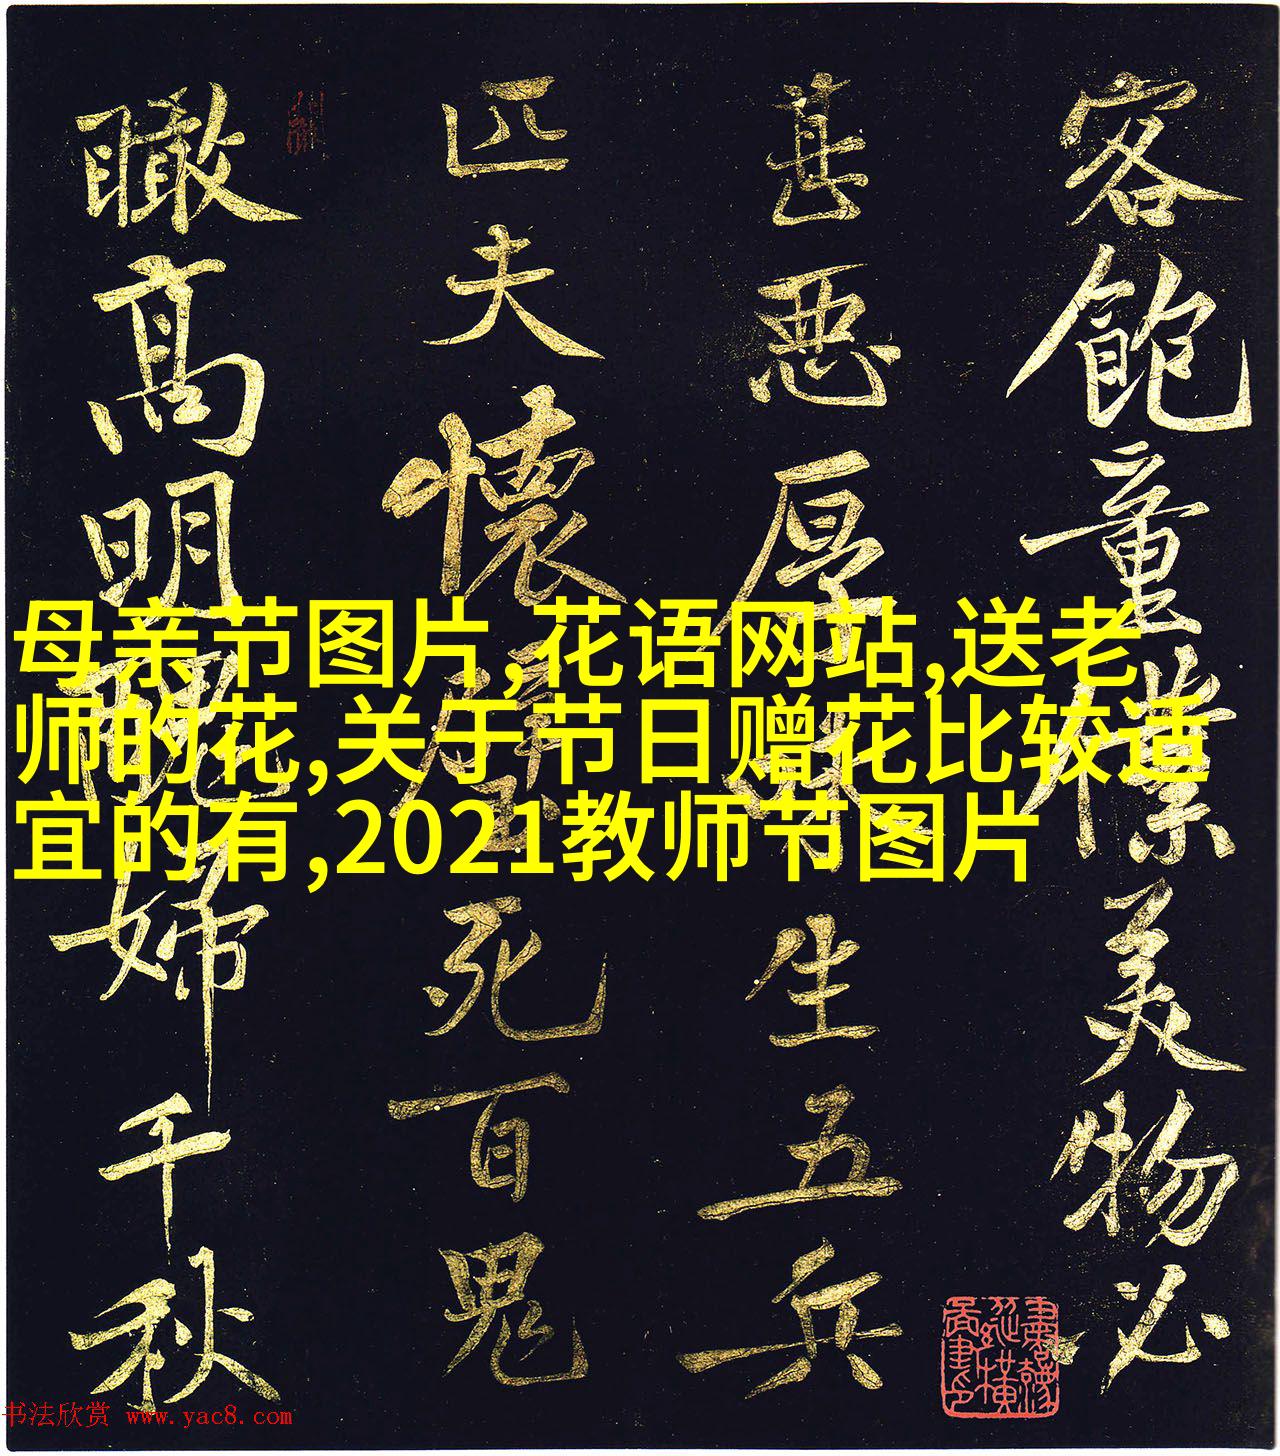 客飽童僕美物必
甚惡厚生五兵
匹夫懷璧死百鬼
瞰高明婦千秋
母亲节图片,花语网站,送老
师的花,关于节日赠花比较适
宜的有,2021教师节图片
书法欣赏 www.yac8.com